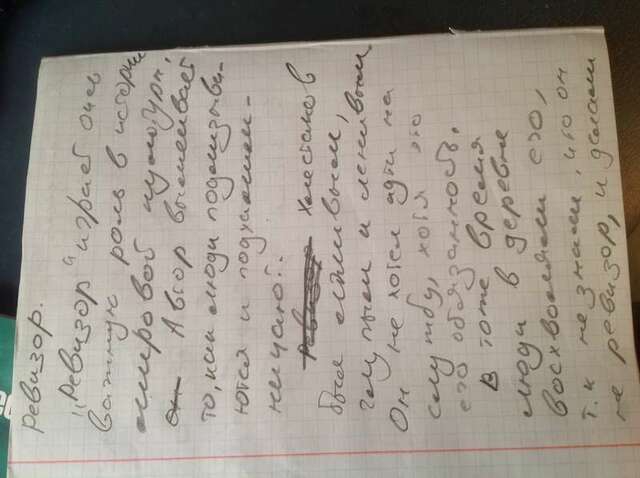 Ревизор.
„Ревизор“ играет очень
важную роль в истории
мировой культуры,
Он Автор высмеивает
то, как люди подлизыва-
ются и подхалим-
ничают.
Ревизор Хлестаков
был лживым,
глупым и ленивым
Он не хотел идти на
службу, хотя это
его обязанность.
В тоже время
люди в деревне
восхваляли его,
т.к не знали, что он
не ревизор, и делали